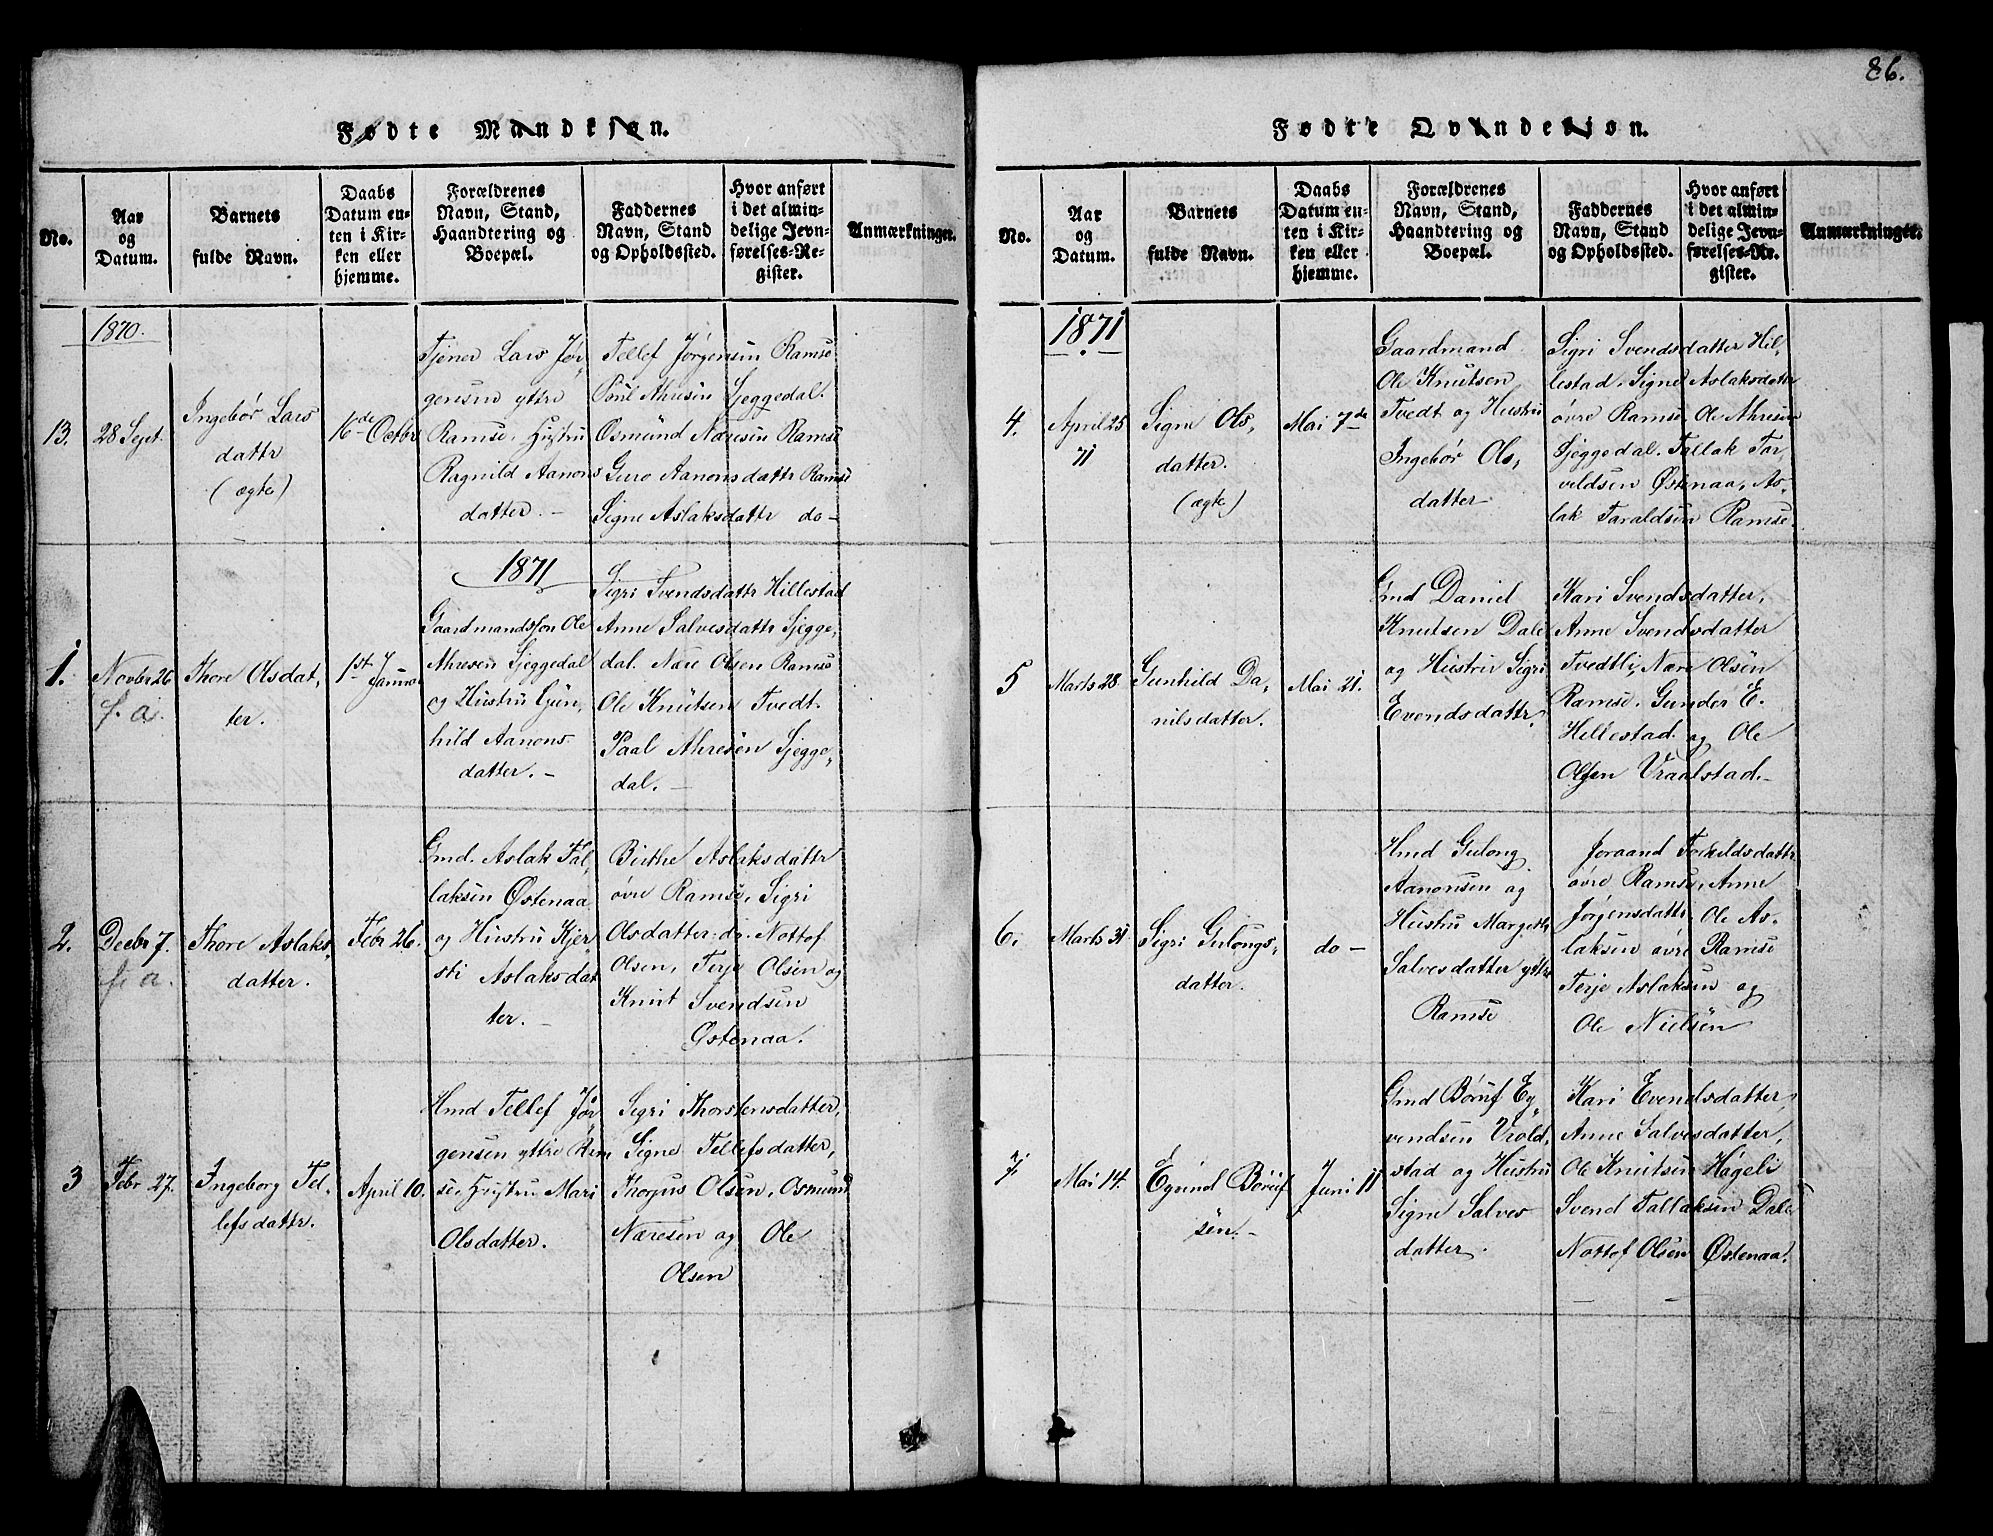 86.
Fødte Mandkjøn.
No.
Aar
og
Datum.
Barnets
fulde Navn.
Daabs
Datum en-
ten i Kir-
ken eller
hjemme.
Forældrenes
Navn, Stand,
Haandtering og
Boepæl.
Faddernes
Navn, Stand
og Opholdssted.
Hvor anført
i det almin-
delige Jevn-
førelses-Re-
gister.
Anmærkninger.
1870.
13.
28 Sept.
Ingebør Lars
dattr
(ægte)
16de Octbr
Tjener Lars Jør-
gensen yttre
Ramse, Hustru
Ragnild Aanons
datter. -
Tellef Jørgensen Ramse
Povl Ahresen Sjeggedal.
Osmund Næresen Ramse
Guro Aanonsdattr Ramse
Signe Aslaksdattr do-
1871
1.
Novbr 26
f. a.
Thore Olsdat,
ter.
1st Januar
Gaardmandssøn Ole
Ahresen Sjeggedal
og Hustru Gun,
hild Aanons
datter. -
Sigri Svendsdattr Hillestad
Anne Salvesdattr Sjegge,
dal. Nære Olsen Ramse
Ole Knutsen Tvedt.
Paal Ahresen Sjegge,
dal. -
2.
Decbr 7.
f. a.
Thore Aslaks,
datter.
Febr 26.
Gmd. Aslak Tal-
laksen Østenaa
og Hustru Kjer-
sti Aslaksdat
ter. -
Birthe Aslaksdattr
øvre Ramse, Sigri
Olsdatter do. Nottof
Olsen, Terje Olsen og
Knut Svendsen
Østenaa.
3
Febr 27.
Ingeborg Tel-
lefsdattr.
April 10.
Hmd Tellef Jør
gensen yttre Ram
se, Hustru Mari
Olsdatter.
Sigri Thorstensdatter,
Signe Tellefsdatter,
Thorjus Olsen, Osmund
Næresen og Ole
Olsen
Fødte Qvindekjøn.
No.
Aar
og
Datum.
Barnets
fulde Navn.
Daabs
Datum en-
ten i Kir-
ken eller
hjemme.
Forældrenes
Navn, Stand,
Haandtering og
Boepæl.
Faddernes
Navn, Stand
og Opholdssted.
Hvor anført
i det almin-
delige Jevn-
førelses-Re-
gister.
Anmærkninger.
1871
4.
April 25
71
Signe Ols,
datter.
(ægte)
Mai 7de
Gaardmand
Ole Knutsen
Tvedt og Hustru
Ingebør Ols,
datter
Sigri Svendsdatter Hil-
lestad. Signe Aslaksdatr
øvre Ramse, Ole Ahresen
Sjeggedal. Tallak Tar,
veldsen Østenaa, As-
lak Taraldsen Ramse.
5
Marts 28
Gunhild Da,
nilsdatter.
Mai 21.
Gmd Daniel
Knutsen Dale
og Hustru Sigri
Evendsdattr.
Kari Svendsdatter,
Anne Svendsdatter
Tvedtli, Nære Olsen
Ramse. Gunder E.
Hillestad og Ole
Olsen Vraalstad. -
6.
Marts 31
Sigri Gulongs,
datter.
do -
Hmd Gulong
Aanonsen og
Hustru Margethe
Salvesdatter yttre
Ramse
Joraand Torkildsdattr
øvre Ramse, Anne
Jørgensdattr, Ole As-
laksen øvre Ramse
Terje Aslaksen og
Ole Nielsen
7.
Mai 14.
Eyvind Børuf
sen. -
Juni 11
Gmd Børuf Ey,
vendsen Vrold,
stad og Hustru
Signe Salves
datter.
Kari Evendsdatter,
Anne Salvesdatter,
Ole Knutsen Hageli
Svend Tallaksen Dale
Nottof Olsen Østenaa.